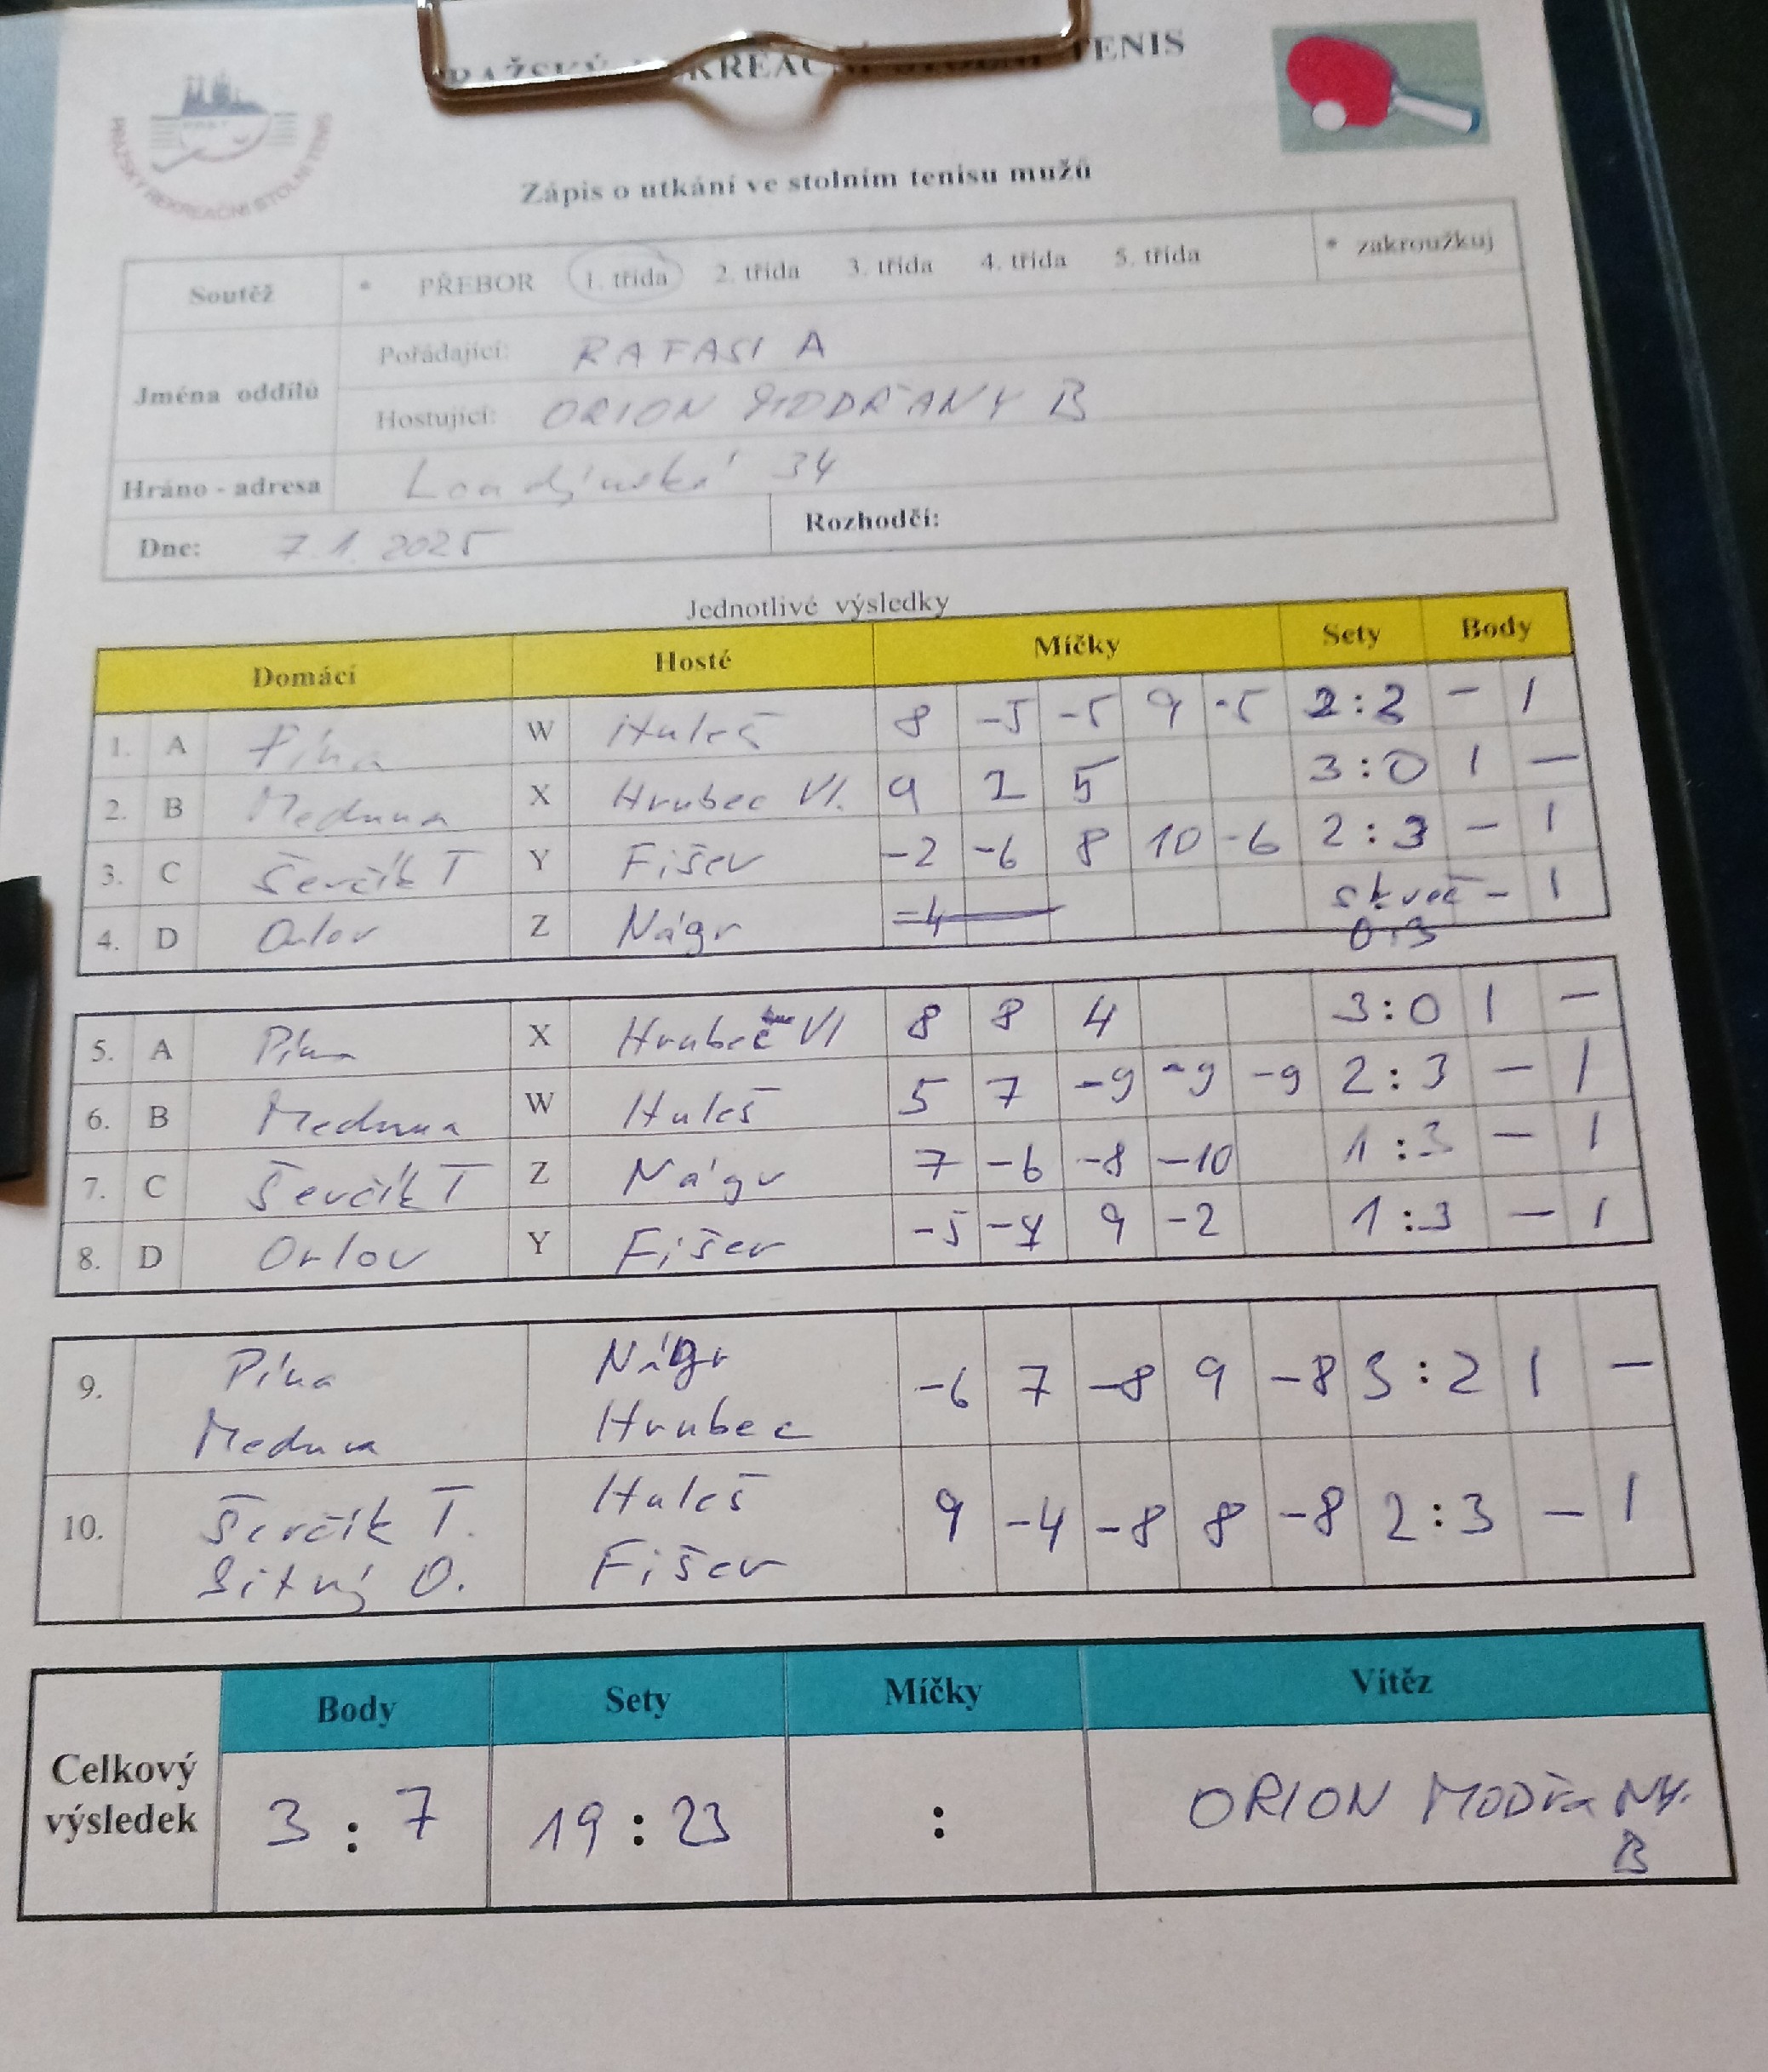 STOLNÍ TENIS
PRAŽSKÝ REKREAČNÍ STOLNÍ TENIS
Zápis o utkání ve stolním tenisu mužů
Soutěž * PŘEBOR 1. třída 2. třída 3. třída 4. třída 5. třída * zakroužkuj
Jména oddílů
Pořádající: RAFASI A
Hostující: ORION MODŘANY B
Hráno - adresa Londýnská 34
Dne: 7.1.2025 Rozhodčí:
Jednotlivé výsledky
Domácí Hosté Míčky Sety Body
1. A Pína W Huleš 8 -5 -5 9 -5 2:3 - 1
2. B Meduna X Hrubec Vl. 9 2 5 3:0 1 -
3. C Ševčík T Y Fišer -2 -6 8 10 -6 2:3 - 1
4. D Orlov Z Nágr -4 skreč 0:3 - 1
5. A Pína X Hrubec Vl 8 8 4 3:0 1 -
6. B Meduna W Huleš 5 7 -9 -9 -9 2:3 - 1
7. C Ševčík T Z Nágr 7 -6 -8 -10 1:3 - 1
8. D Orlov Y Fišer -5 -7 9 -2 1:3 - 1
9. Pína Nágr -6 7 -8 9 -8 3:2 1 -
Meduna Hrubec
10. Ševčík T. Huleš 9 -4 -8 8 -8 2:3 - 1
Sitný O. Fišer
Celkový výsledek
Body Sety Míčky Vítěz
3 : 7 19 : 23 : ORION MODřaNY.
B